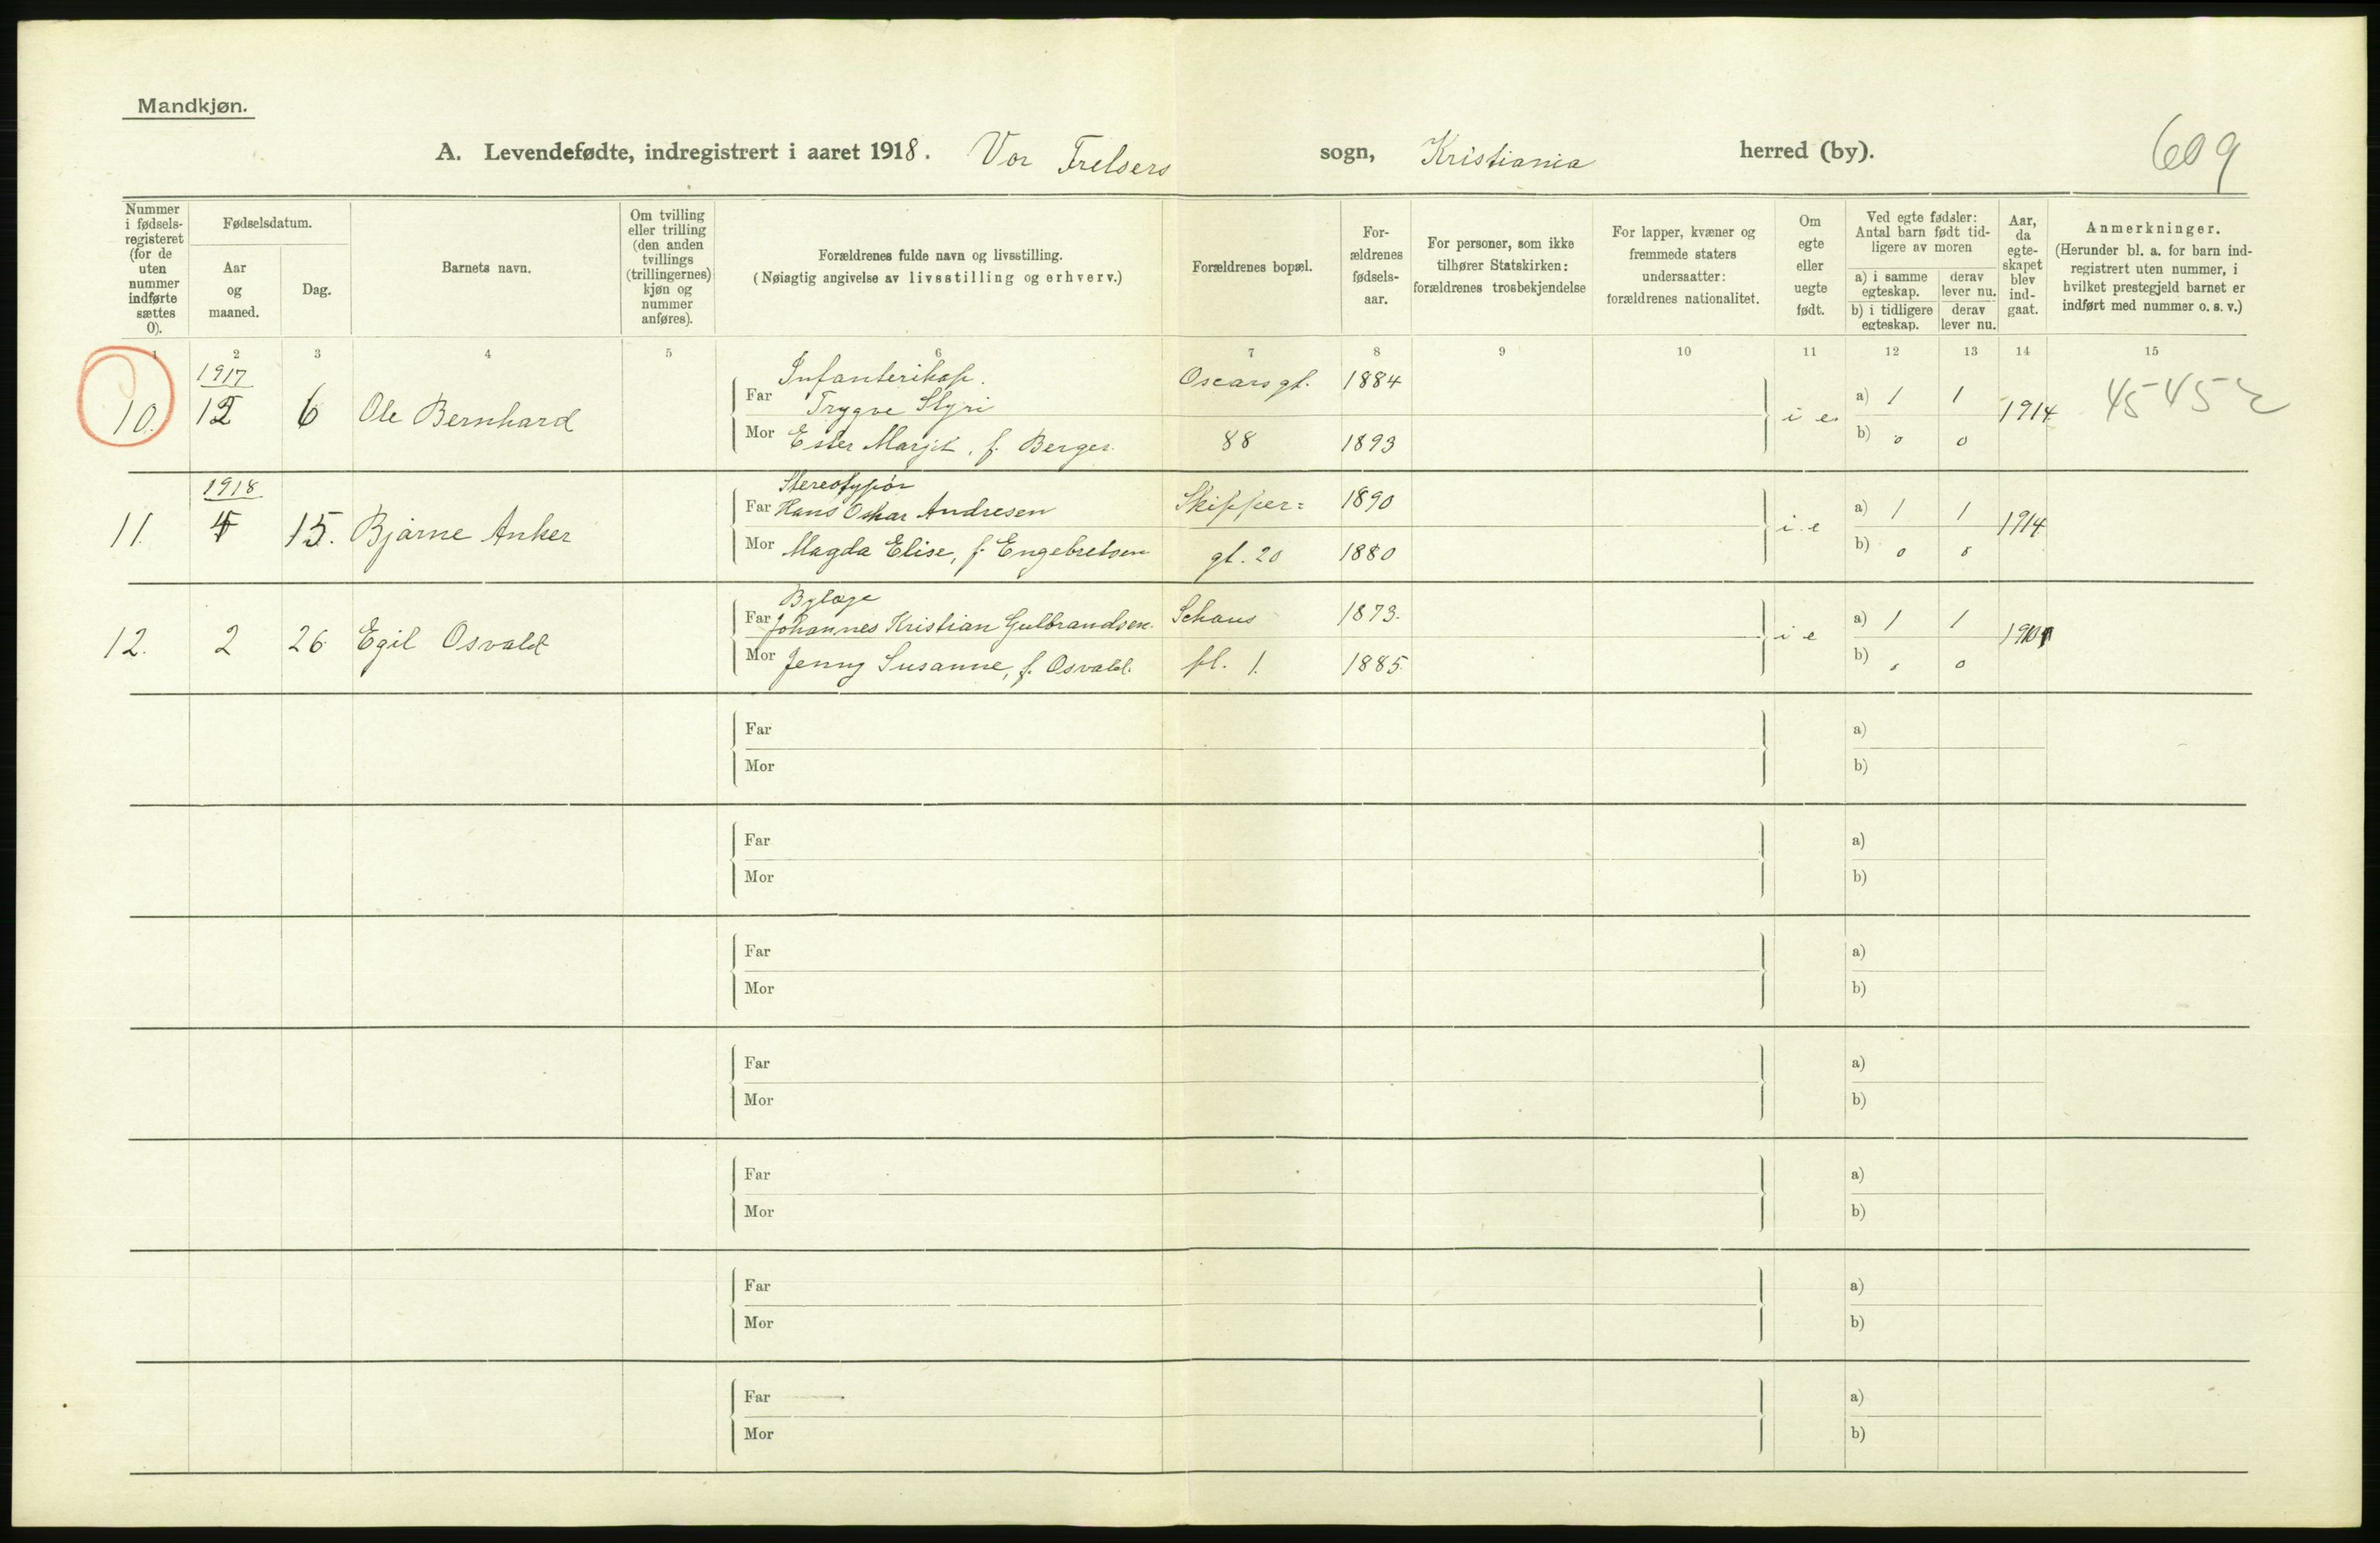 Mandkjøn.
A. Levendefødte, indregistrert i aaret 1918. Vor Frelsers sogn, Kristiania herred (by). 609
Nummer i fødsels-registeret (for de uten nummer indførte sættes 0).
Fødselsdatum.
Aar og maaned.
Dag.
Barnets navn.
Om tvilling eller trilling (den anden tvillings (trillingernes) kjøn og nummer anføres).
Forældrenes fulde navn og livsstilling.
(Nøiagtig angivelse av livsstilling og erhverv.)
Forældrenes bopæl.
For-ældrenes fødsels-aar.
For personer, som ikke tilhører Statskirken: forældrenes trosbekjendelse
For lapper, kvæner og fremmede staters undersaatter: forældrenes nationalitet.
Om egte eller uegte født.
Ved egte fødsler: Antal barn født tid-ligere av moren
a) i samme egteskap. derav lever nu.
b) i tidligere egteskap. derav lever nu.
Aar, da egte-skapet blev ind-gaat.
Anmerkninger.
(Herunder bl. a. for barn ind-registrert uten nummer, i hvilket prestegjeld barnet er indført med nummer o. s. v.)
1 2 3 4 5 6 7 8 9 10 11 12 13 14 15
1917 Infanterikap.
10. 12 6 Ole Bernhard Far Trygve Styri Oscarsgt. 1884 i e a) 1 1 1914
Mor Ester Marjit, f. Berger. 88 1893 b) 0 0
1918 Stereotypør
11. 15. Bjarne Anker Far Hans Oskar Andresen Skipper= 1890 i. e a) 1 1 1914
Mor Magda Elise, f. Engebretsen gt. 20 1880 b) 0 0
12. 2 26 Egil Osvald Far Johannes Kristian Gulbrandsen. Schous 1873. i e a) 1 1
Mor Jenny Susanne, f. Osvald. pl. 1. 1885. b) 0 0
Far a)
Mor b)
Far a)
Mor b)
Far a)
Mor b)
Far a)
Mor b)
Far a)
Mor b)
Far a)
Mor b)
Far a)
Mor b)